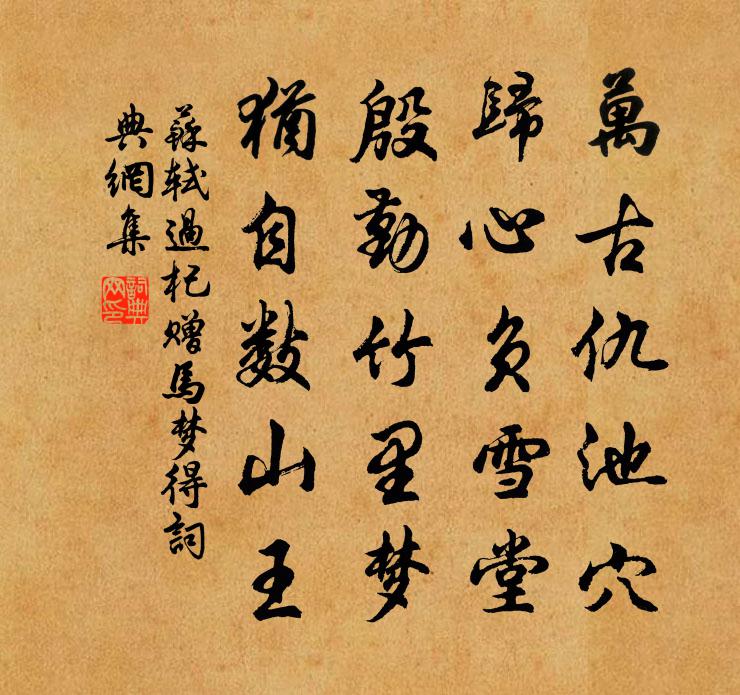 萬古仇池穴
歸心負雪堂
殷勤竹里梦
猶自数山王
蘇軾過杞贈馬梦得詞
典網集
詞典網印